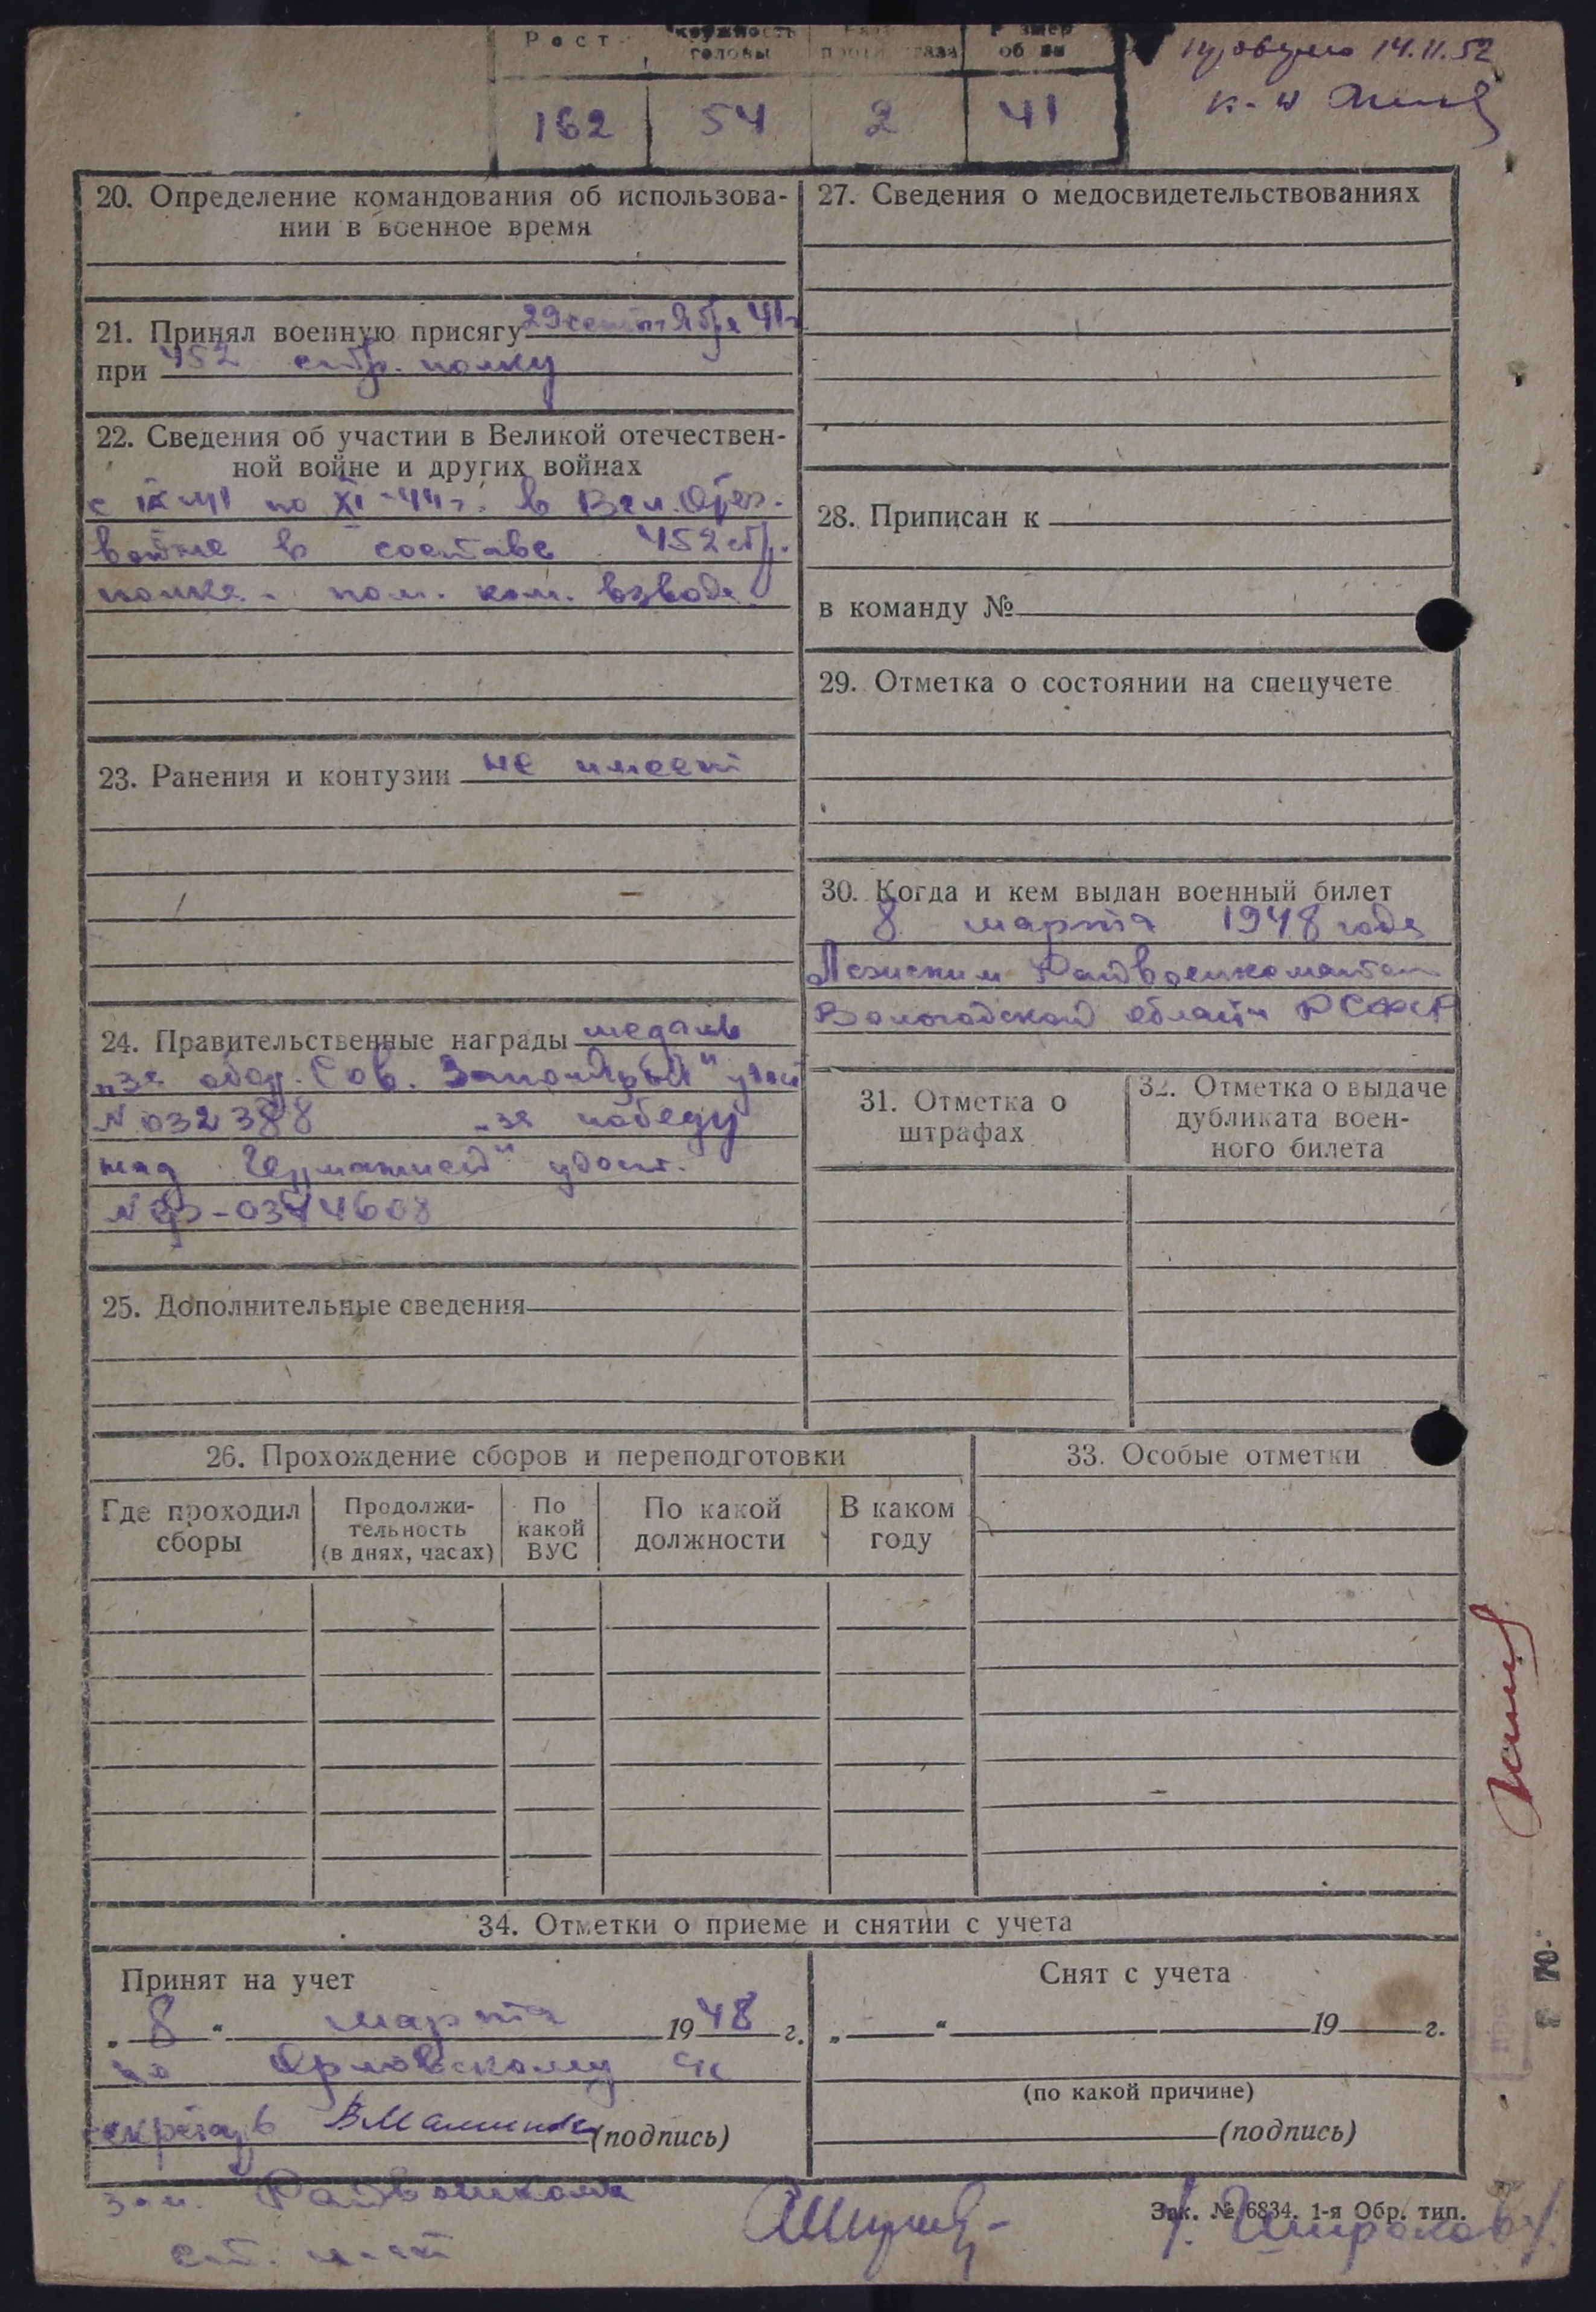 Рост
окружность
головы
противогаза
Размер
обуви
162
54
2
41
14.11.52
к-н
20. Определение командования об использова-
нии в военное время
21. Принял военную присягу 29 сентября 41г
при 452 стр. полку
22. Сведения об участии в Великой отечествен-
ной войне и других войнах
с IX-41 по XI-44г. в Вел. Отеч.
войне в составе 452 стр.
полка - пом. ком. взвода
23. Ранения и контузии не имеет
24. Правительственные награды медаль
„за обор. Сов. Заполярья" удост
№ 032388 „за победу
над Германией" удост.
25. Дополнительные сведения
27. Сведения о медосвидетельствованиях
28. Приписан к
в команду №
29. Отметка о состоянии на спецучете
30. Когда и кем выдан военный билет
8 марта 1948 года
Райвоенкоматом
Вологодской области РСФСР
31. Отметка о
штрафах
32. Отметка о выдаче
дубликата воен-
ного билета
26. Прохождение сборов и переподготовки
Где проходил
сборы
Продолжи-
тельность
(в днях, часах)
По
какой
ВУС
По какой
должности
В каком
году
33. Особые отметки
34. Отметки о приеме и снятии с учета
Принят на учет
„ 8 “ марта 1948 г.
по Орловскому с/с
секретарь (подпись)
Снят с учета
„ “ 19 г.
(по какой причине)
(подпись)
зам. Райвоенкома
ст. л-нт
/. Широков/
Зак. № 6834. 1-я Обр. тип.